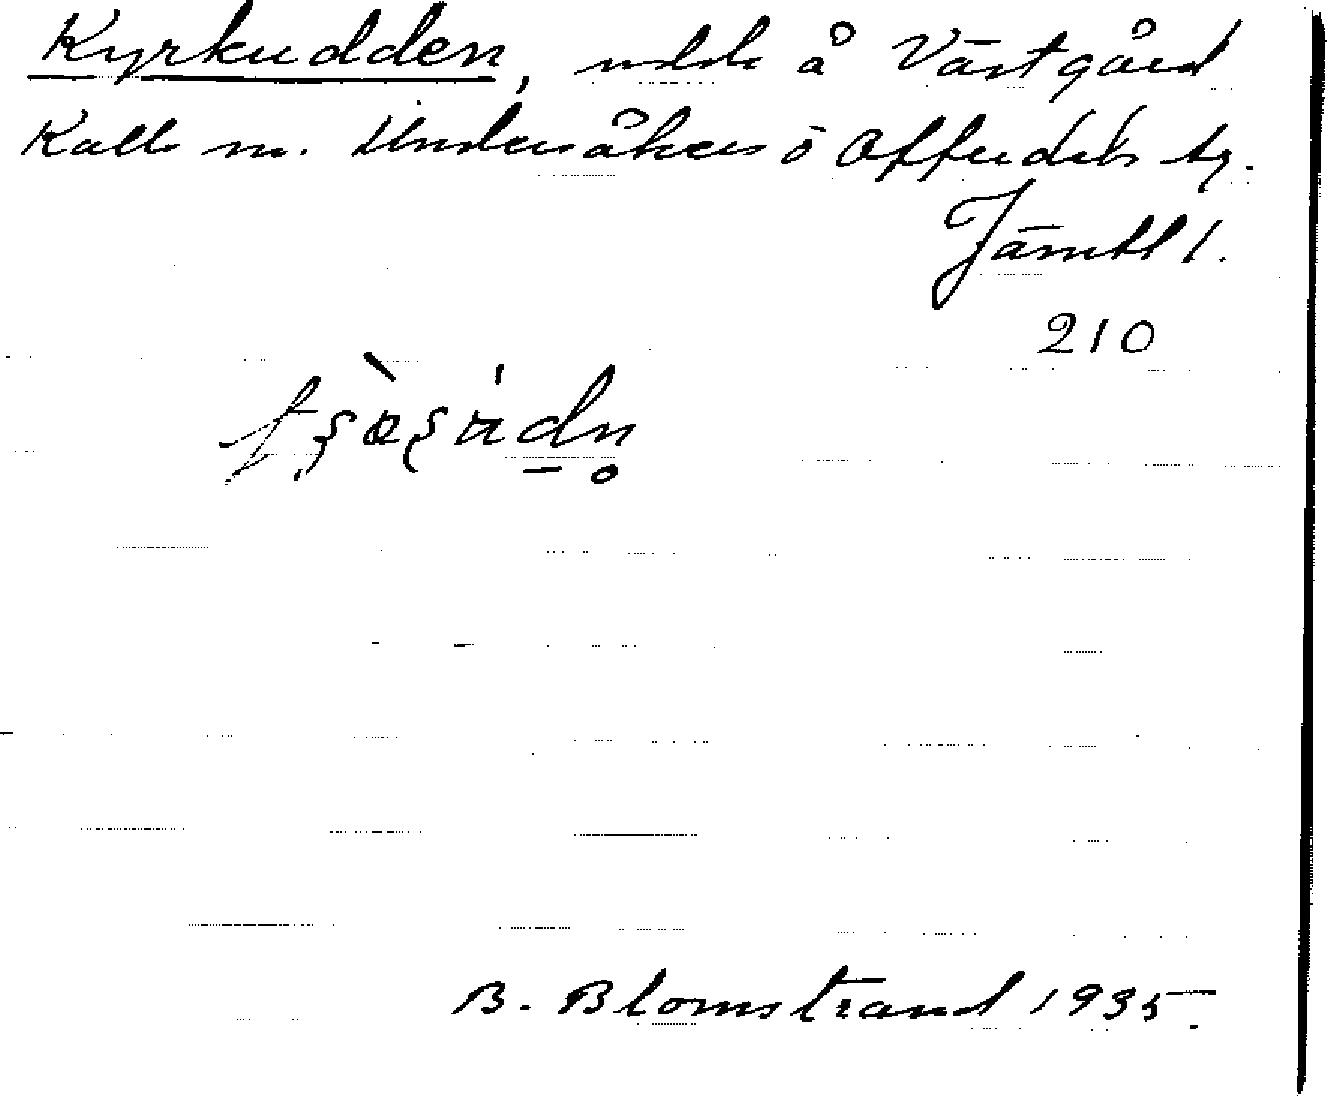 Kyrkudden, udde å Västgård
Kalls sn. Undersåkers o Offerdals tg.
Jämtl l.
210
B. Blomstrand 1935.